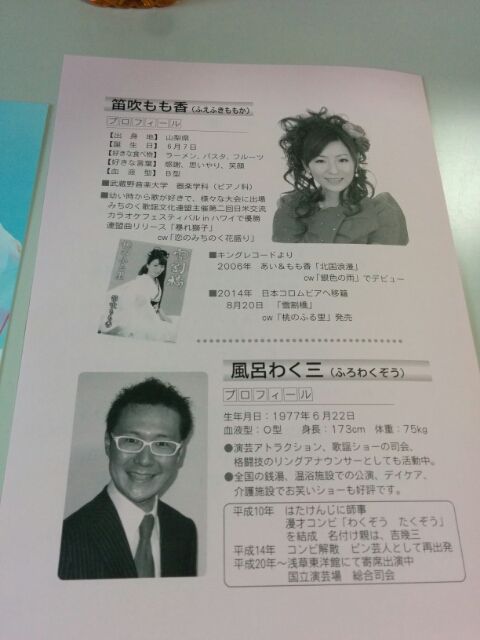 笛吹もも香（ふえふきももか）
プロフィール
【出　身　地】 山梨県
【誕　生　日】 6月7日
【好きな食べ物】 ラーメン、パスタ、フルーツ
【好きな言葉】 感謝、思いやり、笑顔
【血　液　型】 B型
■武蔵野音楽大学　器楽学科（ピアノ科）
■幼い時から歌が好きで、様々な大会に出場
みちのく歌謡文化連盟主催第二回日米交流
カラオケフェスティバル in ハワイで優勝
連盟曲リリース「暴れ獅子」
cw「恋のみちのく花盛り」
■キングレコードより
2006年　あい＆もも香「北国浪漫」
cw「銀色の雨」でデビュー
■2014年　日本コロムビアへ移籍
8月20日　「雪割橋」
cw「桃のふる里」発売
雪割橋
桃のふる里
笛吹もも香
風呂わく三（ふろわくぞう）
プロフィール
生年月日：1977年6月22日
血液型：O型　身長：173cm　体重：75kg
●演芸アトラクション、歌謡ショーの司会、
格闘技のリングアナウンサーとしても活動中。
●全国の銭湯、温浴施設での公演、デイケア、
介護施設でお笑いショーも好評です。
平成10年　はたけんじに師事
漫才コンビ「わくぞう　たくぞう」
を結成　名付け親は、吉幾三
平成14年　コンビ解散　ピン芸人として再出発
平成20年〜浅草東洋館にて寄席出演中
国立演芸場　総合司会